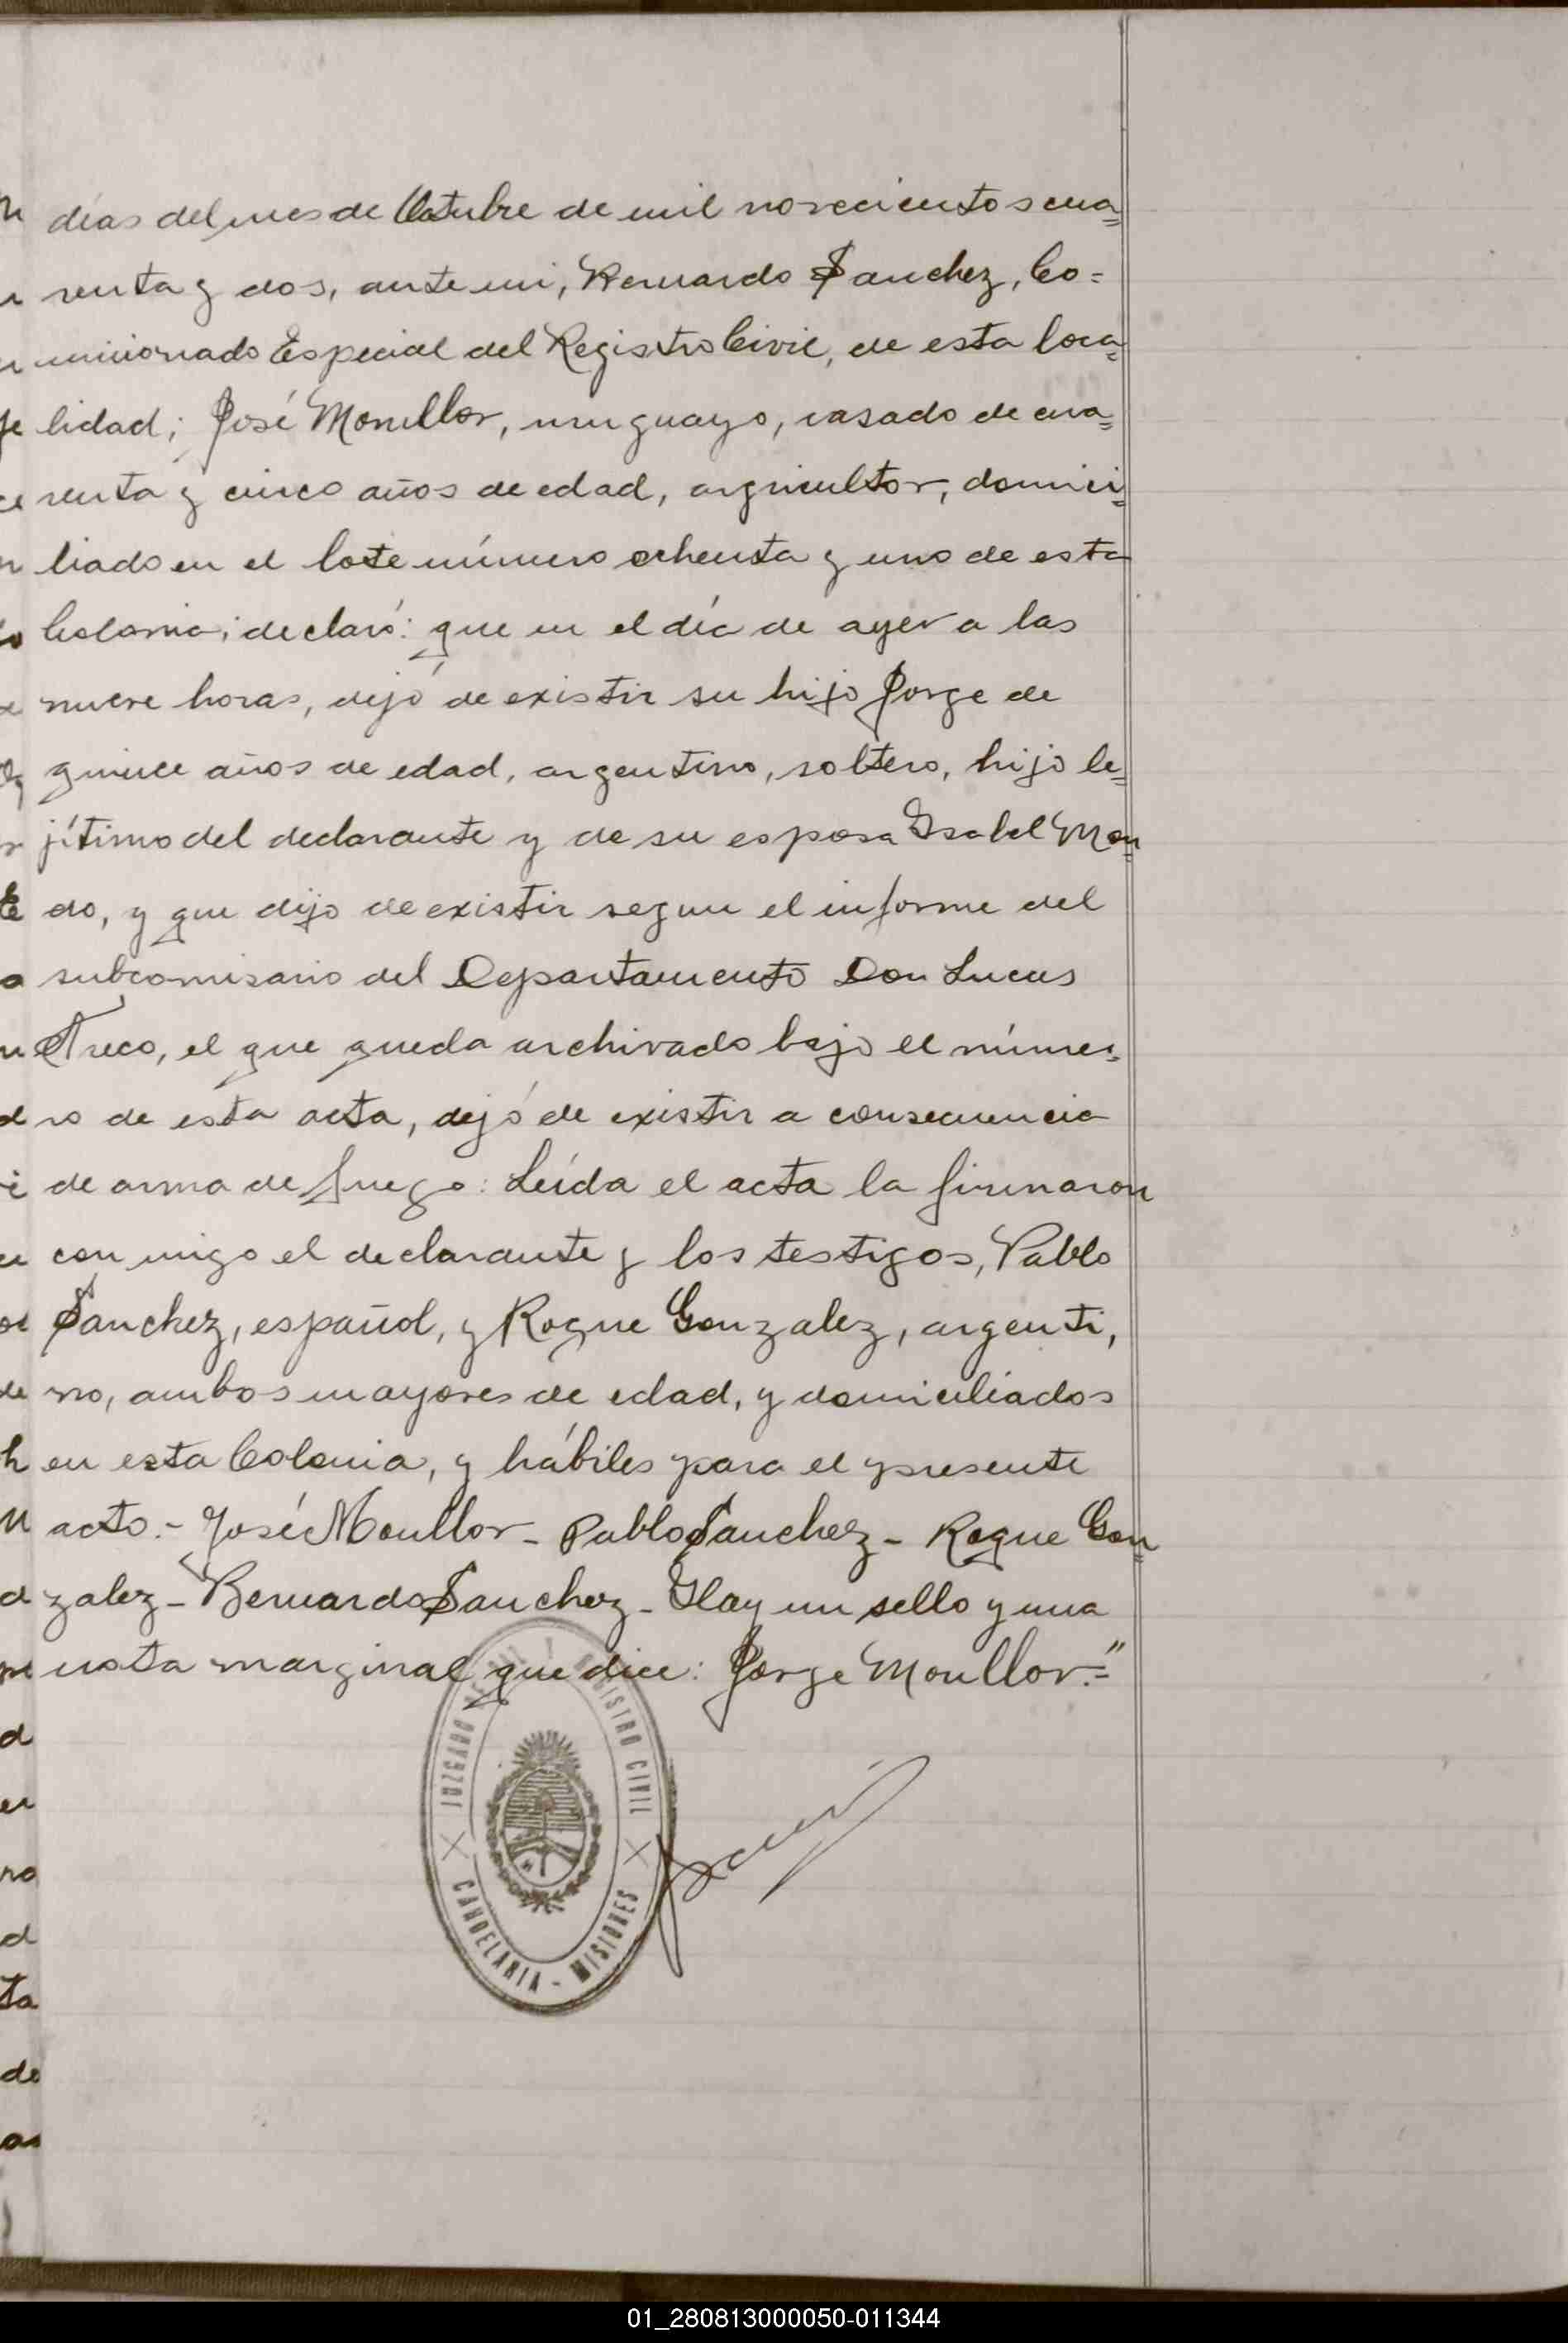 días del mes de Octubre de mil novecientos cua=
renta y dos, ante mi, Bernardo Sanchez, Co=
misionado Especial del Registro Civil, de esta loca=
lidad; José Monllor, uruguayo, casado de cua=
renta y cinco años de edad, argricultor, domici=
liado en el lote número ochenta y uno de esta
Colonia; declaró: que en el día de ayer a las
nueve horas, dejó de existir su hijo Jorge de
quince años de edad, argentino, soltero, hijo le=
jítimo del declarante y de su esposa Isabel Mon=
do, y que dijo de existir segun el informe del
subcomisario del Departamento Don Lucas
Areco, el que queda archivado bajo el núme=
ro de esta acta, dejó de existir a consecuencia
de arma de fuego: Leída el acta la firmaron
con migo el declarante y los testigos, Pablo
Sanchez, español, y Roque Gonzalez, argenti,
no, ambos mayores de edad, y domiciliados
en esta Colonia, y hábiles para el presente
acto.- José Monllor - Pablo Sanchez - Roque Gon=
zalez - Bernardo Sanchez - Hay un sello y una
nota marginal que dice: Jorge Monllor.="
JUZGADO DE PAZ Y REGISTRO CIVIL
CANDELARIA - MISIONES
01_280813000050-011344